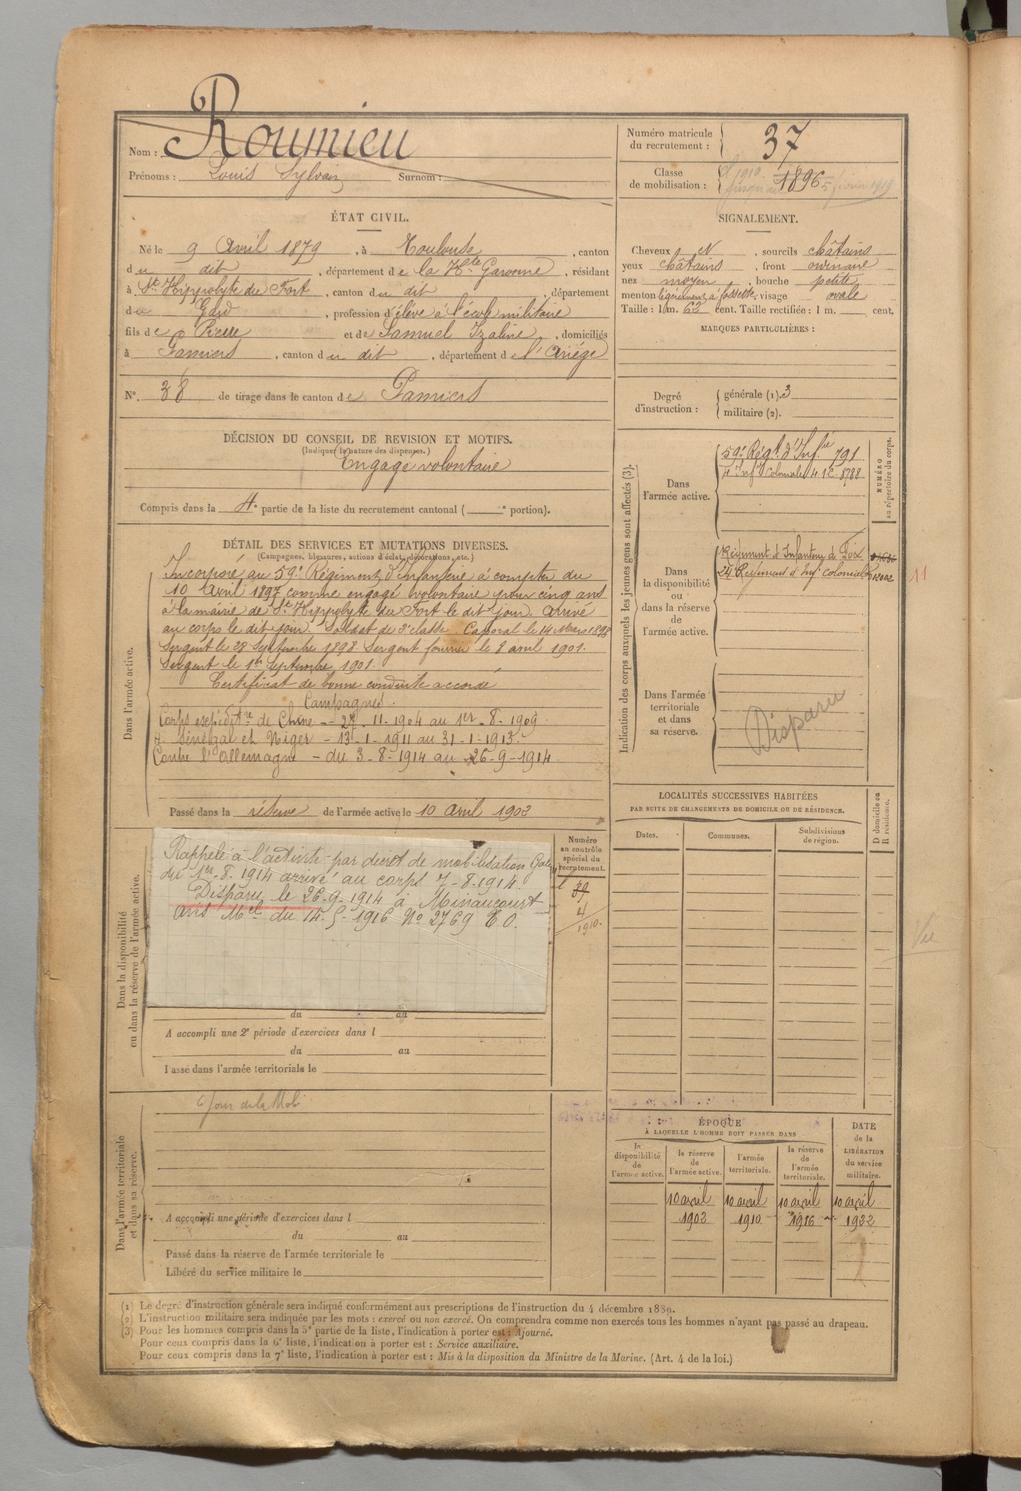 Nom : Roumieu
Prénoms : Louis Sylvain Surnom :
ÉTAT CIVIL.
Né le 9 Avril 1879, à Toulouse, canton
du dit, département de la Hte Garonne, résidant
à St Hippolyte du Fort, canton du dit, département
du Gard, profession d'élève à l'école militaire
fils de Pierre et de Samuel Izaline, domiciliés
à Pamiers, canton du dit, département de l'Ariège
N°. 38 de tirage dans le canton de Pamiers
DÉCISION DU CONSEIL DE REVISION ET MOTIFS.
(Indiquer la nature des dispenses.)
Engagé volontaire
Compris dans la 4e partie de la liste du recrutement cantonal ( e portion).
DÉTAIL DES SERVICES ET MUTATIONS DIVERSES.
(Campagnes, blessures, actions d'éclat, décorations, etc.)
Dans l'armée active.
Incorporé au 59e Régiment d'Infanterie à compter du
10 Avril 1897 comme engagé volontaire pour cinq ans
à la mairie de St Hippolyte du Fort le dit jour. Arrivé
au corps le dit jour. Soldat de 2e classe. Caporal le 14 Mars 1898
Sergent le 28 Septembre 1898. Sergent fourrier le 8 avril 1901.
Sergent le 1er Septembre 1901.
Certificat de bonne conduite accordé
Campagnes.
Corps expédit.re de Chine - 27 - 11 - 1904 au 1er - 8 - 1909
Sénégal et Niger - 13 - 1 - 1911 au 31 - 1 - 1913.
Contre l'Allemagne - du 3 - 8 - 1914 au 26 - 9 - 1914.
Passé dans la réserve de l'armée active le 10 Avril 1902
Dans la disponibilité
ou dans la réserve de l'armée active.
Rappelé à l'activité par décret de mobilisation Gale
du 1er - 8 - 1914 arrivé au corps 7 - 8 - 1914.
Disparu le 26 - 9 - 1914 à Minaucourt
avis Mel du 14 - 5 - 1916 No 2769 E O.
Numéro
au contrôle
spécial du
recrutement.
4
1910.
du au
A accompli une 2e période d'exercices dans l
du au
Passé dans l'armée territoriale le
Dans l'armée territoriale
et dans sa réserve.
Jour de la Mob
A accompli une période d'exercices dans l
du au
Passé dans la réserve de l'armée territoriale le
Libéré du service militaire le
Numéro matricule
du recrutement : 37
Classe
de mobilisation : 1896
SIGNALEMENT.
Cheveux N, sourcils châtains
yeux châtains, front ordinaire
nez moyen, bouche petite
menton légèrement à fossette, visage ovale
Taille : 1 m. 62 cent. Taille rectifiée : 1 m. cent.
MARQUES PARTICULIÈRES :
Degré
d'instruction :
générale (1). 3
militaire (2).
Indication des corps auxquels les jeunes gens sont affectés (3).
NUMÉRO
au répertoire du corps.
Dans
l'armée active.
59e Régt d'Inf.ie 791
Inf Coloniale 8788
Dans
la disponibilité
ou
dans la réserve
de
l'armée active.
Régiment d'Infanterie de Foix
24e Régiment d'Inf. coloniale
11
Dans l'armée
territoriale
et dans
sa réserve.
Disparu
LOCALITÉS SUCCESSIVES HABITÉES
PAR SUITE DE CHANGEMENTS DE DOMICILE OU DE RÉSIDENCE.
Dates. Communes. Subdivisions
de région.
D domicile ou
R résidence.
Vu
ÉPOQUE
À LAQUELLE L'HOMME DOIT PASSER DANS
la
disponibilité
de
l'armée active.
la réserve
de
l'armée active.
l'armée
territoriale.
la réserve
de
l'armée
territoriale.
DATE
de la
LIBÉRATION
du service
militaire.
10 avril 10 avril 10 avril 10 avril
1902 1910 1916 1922
(1) Le degré d'instruction générale sera indiqué conformément aux prescriptions de l'instruction du 4 décembre 1889.
(2) L'instruction militaire sera indiquée par les mots : exercé ou non exercé. On comprendra comme non exercés tous les hommes n'ayant pas passé au drapeau.
(3) Pour les hommes compris dans la 5e partie de la liste, l'indication à porter est : Ajourné.
Pour ceux compris dans la 6e liste, l'indication à porter est : Service auxiliaire.
Pour ceux compris dans la 7e liste, l'indication à porter est : Mis à la disposition du Ministre de la Marine. (Art. 4 de la loi.)